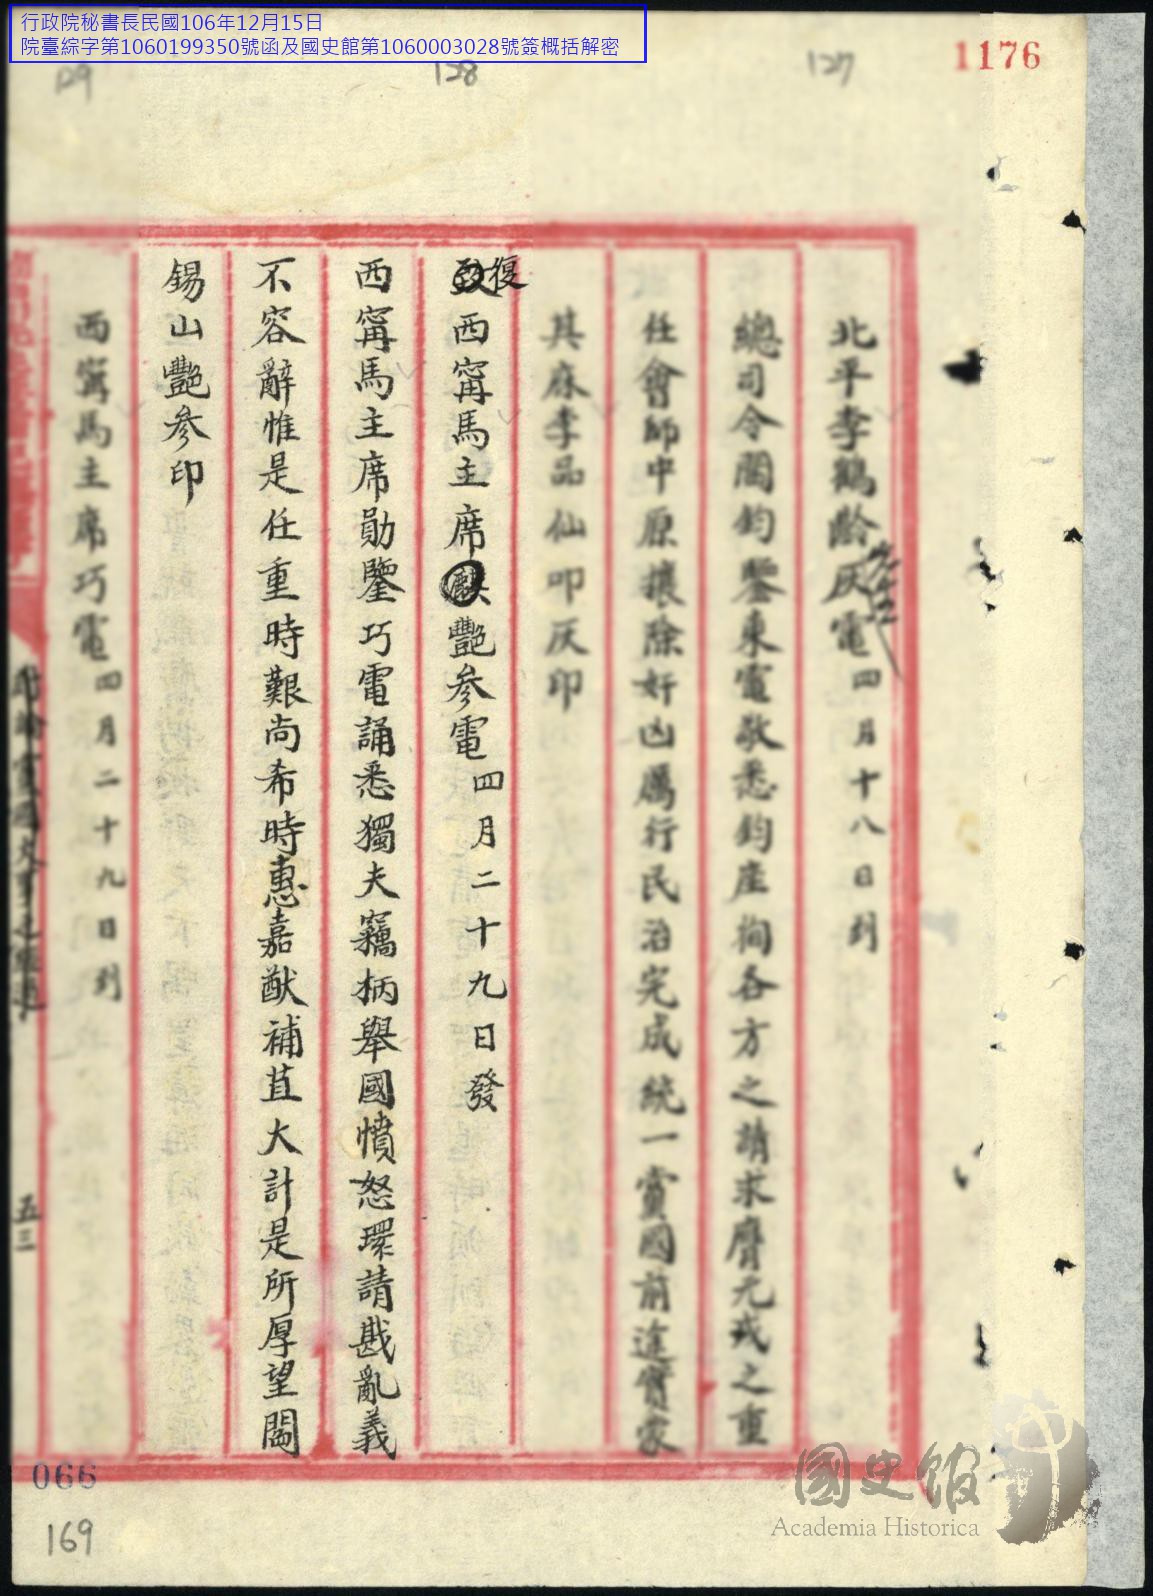 行政院秘書長民國106年12月15日
院臺綜字第1060199350號函及國史館第1060003028號簽概括解密
1176
127
128
129
北平李鶴齡灰電四月十八日到
總司令閻鈞鑒東電敬悉鈞座徇各方之請求膺元戎之重
任會師中原攘除奸凶厲行民治完成統一黨國前途實家
其庥李品仙叩灰印
復西甯馬主席艷參電四月二十九日發
西甯馬主席勛鑒巧電誦悉獨夫竊柄舉國憤怒環請戡亂義
不容辭惟是任重時艱尚希時惠嘉猷補苴大計是所厚望閻
錫山艷參印
西甯馬主席巧電四月二十九日到
五三
066
169
國史館
Academia Historica